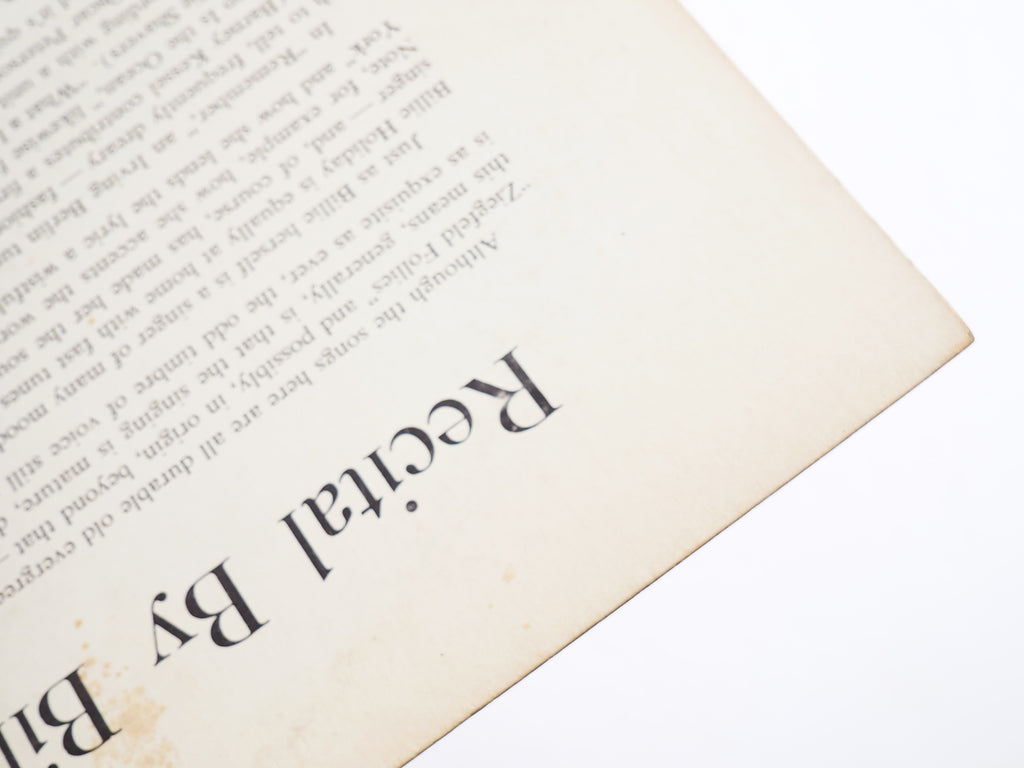 Recital By Bil
Although the songs here are all durable old evergree
"Ziegfeld Follies" and possibly, in origin, beyond that —
this means, generally, is that the singing is mature, d
is as exquisite as ever, the odd timbre of voice still
Just as Billie herself is a singer of many mood
Billie Holiday is equally at home with fast tunes
singer — and, of course, has made her the sou
Note, for example, how she accents the wor
York" and how she lends the lyric a wistful
In "Remember," an Irving Berlin tun
tell, frequently dreary — fashio
Barney Kessel contributes a fi
Is the Ocean," likewise
Shavers). "What a
with a unit